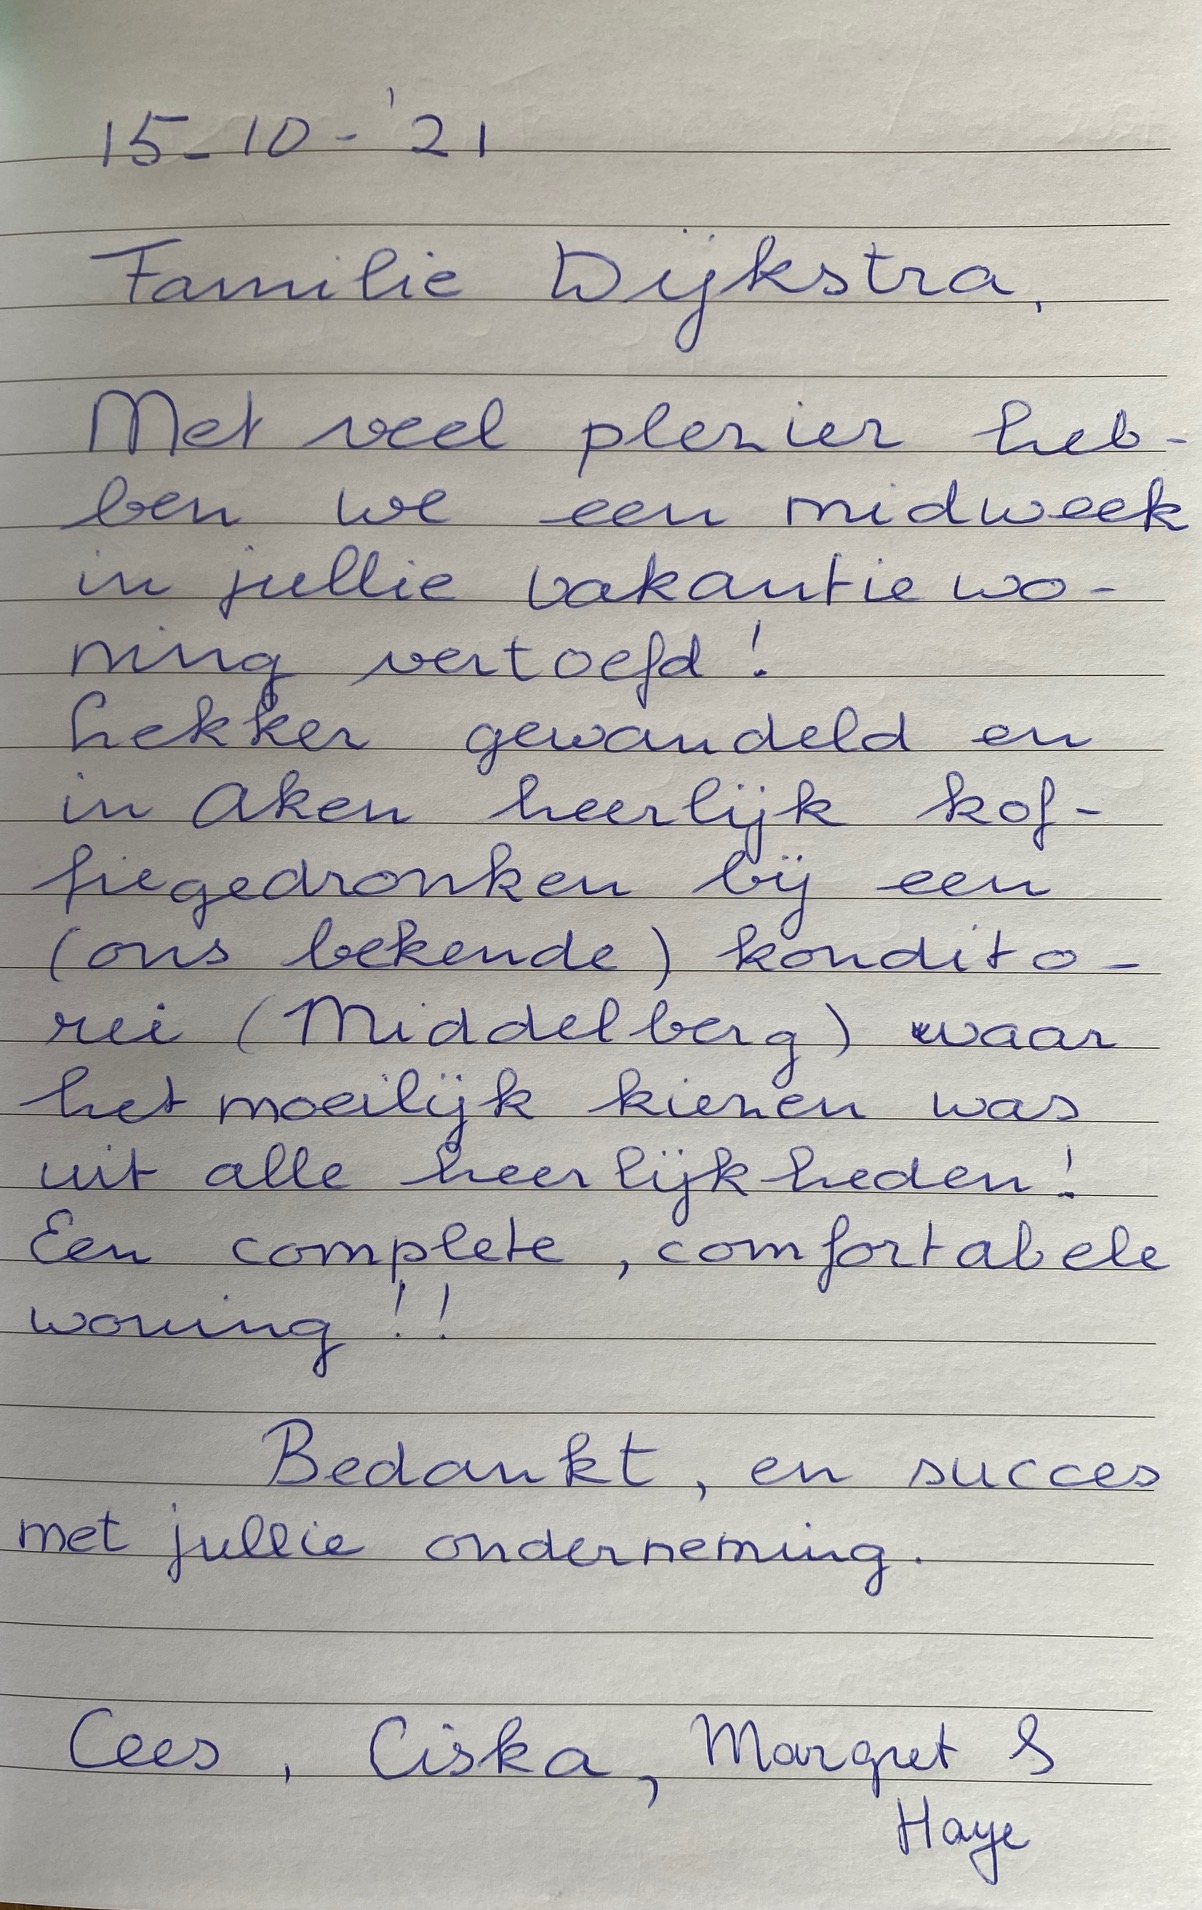 15-10-'21
Familie Dijkstra,
Met veel plezier heb-
ben we een midweek
in jullie vakantiewo-
ning vertoefd!
Lekker gewandeld en
in Aken heerlijk kof-
fiegedronken bij een
(ons bekende) kondito-
rei (Middelberg) waar
het moeilijk kiezen was
uit alle heerlijkheden!
Een complete, comfortabele
woning!!
Bedankt, en succes
met jullie onderneming.
Cees, Ciska, Margret &
Haye